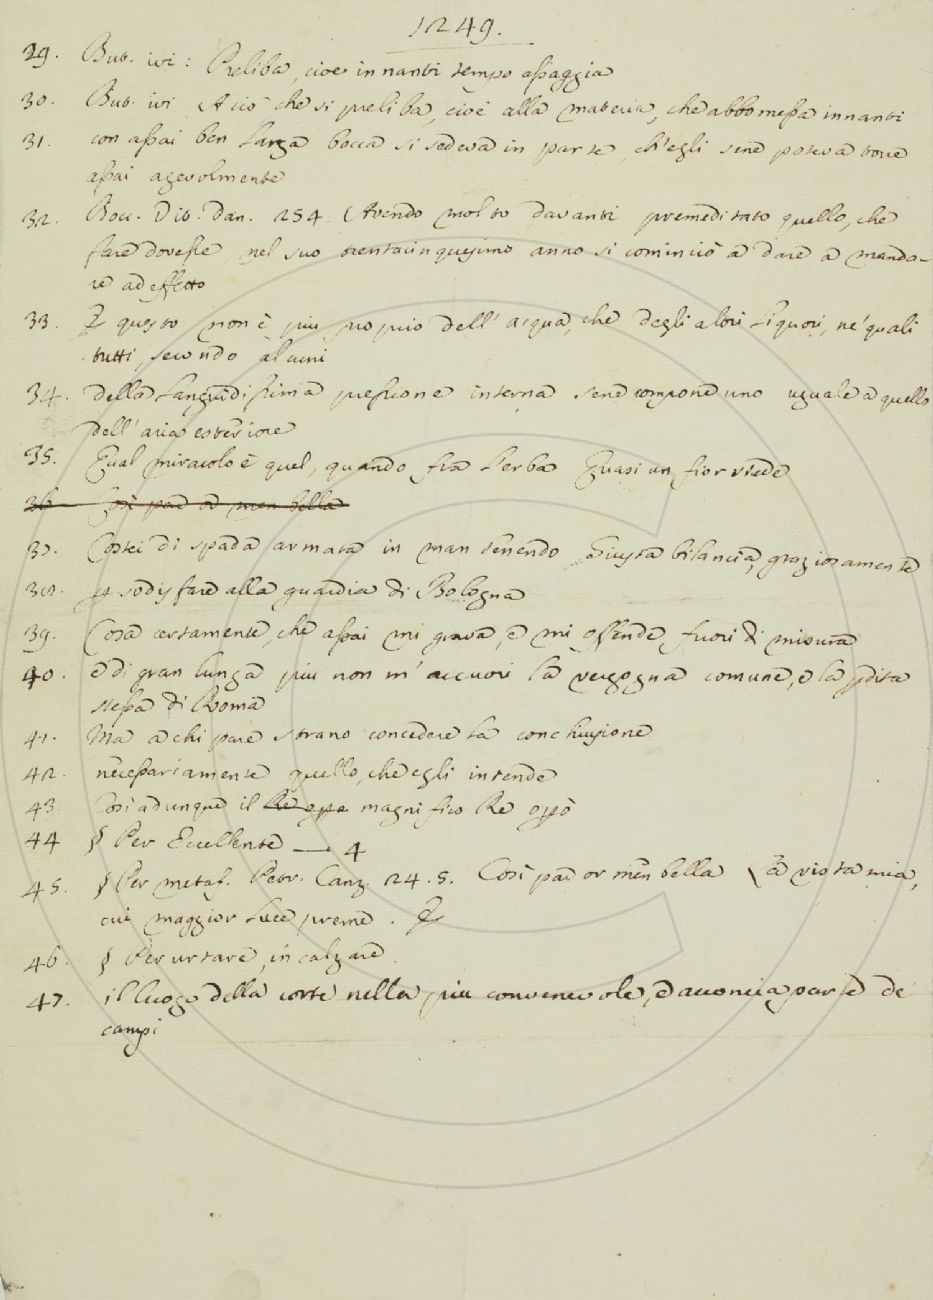 1249.
29. But. ivi: Preliba, cioe innanti tempo assaggia
30. But. ivi A ciò che si preliba, cioè alla materia, che abbo messa innanti
31. con assai ben larga bocca si sedeva in parte, ch'egli sene poteva bere
assai agevolmente
32. Bocc. Vit. Dan. 254. Avendo molto davanti premeditato quello, che
fare dovesse, nel suo trentacinquesimo anno si cominciò a dare a manda-
re ad effetto
33. E questo non è più proprio dell'acqua, che degli altri liquori, ne' quali
tutti, secondo alcuni
34. della languidissima pressione interna sene compone uno uguale a quello
dell'aria esteriore
35. Qual miracolo è quel, quando fra l'erba Quasi un fior siede
36 Così par or men bella
37. Costei di spada armata in man tenendo Giusta bilancia, graziosamente
38. p sodisfare alla guardia di Bologna
39. Cosa certamente, che assai mi grava, e mi offende fuori di misura
40. e di gran lunga più non m'accuori la vergogna comune, e la pdita
stessa di Roma
41. Ma a chi pare strano concedere la conchiusione
42. necessariamente quello, che egli intende
43 Così adunque il Re magnifico Re
44 § Per Eccellente — 4
45. § Per metaf. Petr. Canz. 24. 5. Così par or men bella La vista mia,
cui maggior luce preme.
46. § Per urtare, incalzare.
47. il luogo della corte nella più convenevole, e acconcia parte de'
campi